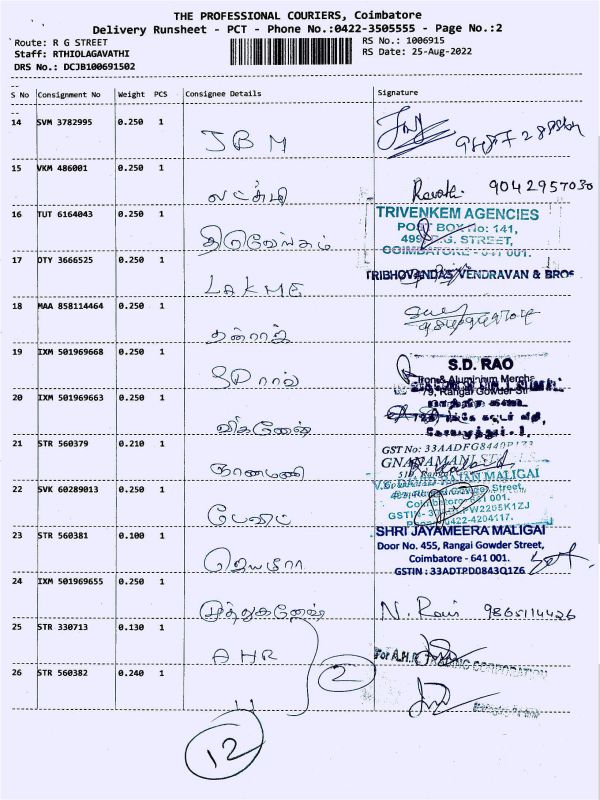 THE PROFESSIONAL COURIERS, Coimbatore
Delivery Runsheet - PCT - Phone No.:0422-3505555 - Page No.:2
Route: R G STREET
RS No.: 1006915
Staff: RTHIOLAGAVATHI
RS Date: 25-Aug-2022
DRS No.: DCJB100691502
S No Consignment No Weight PCS Consignee Details Signature
14 SVM 3782995 0.250 1
JBM
15 VKM 486001 0.250 1
லட்சுமி
Revathi 9042957030
16 TUT 6164043 0.250 1
TRIVENKEM AGENCIES
POST BOX No: 141,
499, R.G. STREET,
COIMBATORE - 641 001.
திருவேங்கம்
17 OTY 3666525 0.250 1
TRIBHOVANDAS VENDRAVAN & BROS
LAKME
18 MAA 858114464 0.250 1
தன்ராஜ்
19 IXM 501969668 0.250 1
S.D. RAO
Iron & Aluminium Mercha
79, Rangai Gowder Str
SDராவ்
20 IXM 501969663 0.250 1
விக்னேஷ்
21 STR 560379 0.210 1
GST No: 33AADFG8440P1Z3
ஞானமணி
22 SVK 60289013 0.250 1
MALIGAI
Coimbatore - 641 001.
0422-4204117.
23 STR 560381 0.100 1
SHRI JAYAMEERA MALIGAI
Door No. 455, Rangai Gowder Street,
Coimbatore - 641 001.
GSTIN : 33ADTPD0843Q1Z6
ஜெயமீரா
24 IXM 501969655 0.250 1
முத்துகணேஷ்
N. Ravi 9865114426
25 STR 330713 0.130 1
AHR
For A.H.R TRADING CORPORATION
2
26 STR 560382 0.240 1
"
12